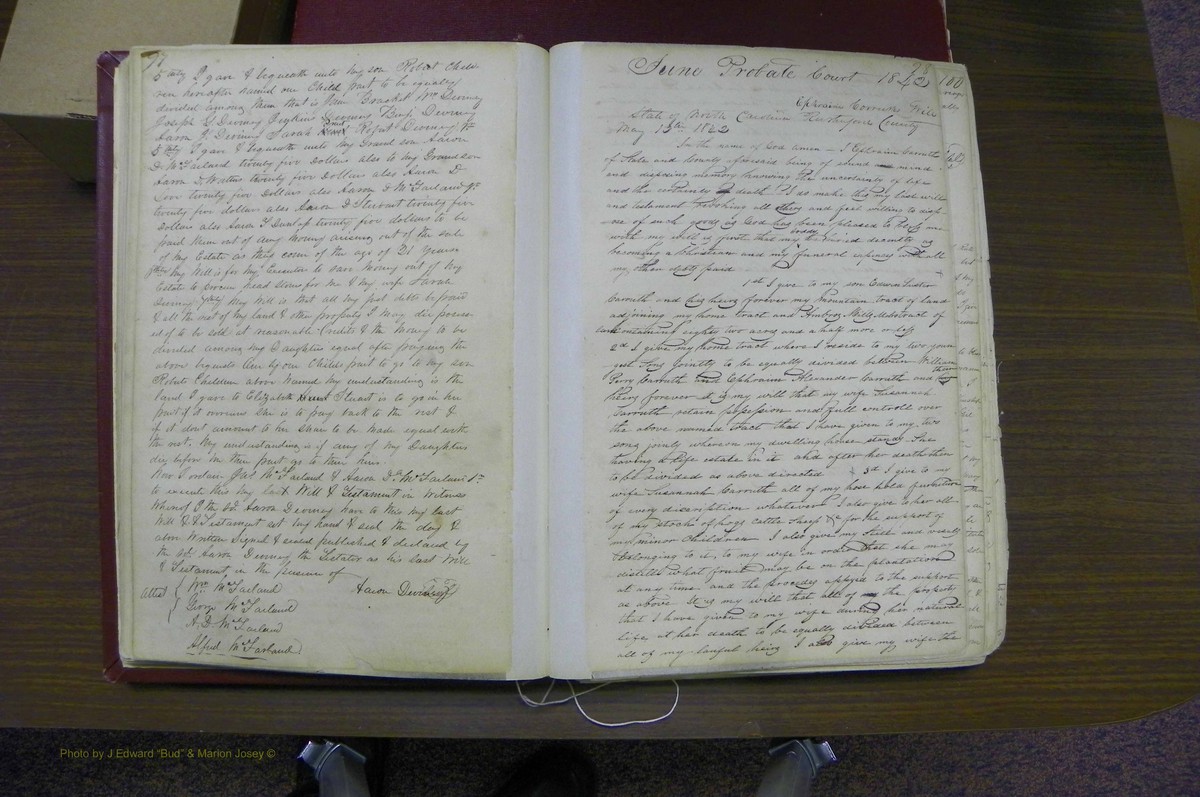 5thly I gave & bequeath unto my son Robert Child
ren hereafter named one Child part to be equally
divided among them that is Wm Deviney
Joseph G Deviney Deviney Benj. Deviney
Aaron Deviney Sarah Robert Deviney
I gave & bequeath unto my Grand son Aaron
D McFarland twenty five dollars also to my Grandson
Aaron D Watters twenty five dollars also Aaron D
twenty five Dollars also Aaron D McFarland
twenty five dollars also Aaron D Stewart twenty five
Dollars also Aaron Dunlap twenty five dollars to be
paid them out of any money arising out of the sale
of my Estate as they come of the age of 21 years
my Will is for my Executor to save money out of my
Estate to procure head stones for me & my wife Sarah
Deviney 7thly May Will is that all my just debts be paid
& all the rest of my land & other property I may die possess
ed of to be sold at reasonable Credits & the money to be
divided among my Daughters equal after paying the
above bequests One Childs part to go to my son
Roberts Children above Named My understanding is the
land I gave to Elizabeth Stuart is to go in her
part if it overruns she is to pay back to the rest &
if it dont amount to her share to be made equal with
the rest. My understanding is if any of my Daughters
die before me their part go to their heirs.
Now I ordain McFarland & Aaron D. McFarland
to execute this my last Will & Testament in Witness
Whereof I the sd. Aaron Devinney have to this my last
Will & Testament set my hand & seal the day &
above Written Signed & sealed published & declared by
the sd. Aaron Devinney the Testator as his last Will
& Testament in the presence of
Attest Wm McFarland Aaron Devinney
George McFarland
A. D McFarland
Alfred McFarland
June Probate Court 100
Ephraim Carruths Will
State of North Carolina Rutherford County
May 13th 1822
In the name of God amen - I Ephraim Carruth
of State and County aforesaid being of sound mind
and disposing memory knowing the uncertainty of life
and the certainty of death Do make this my last will
and testament revoking all others and feel willing to disp
ose of such goods as God has been pleased to bless me
with my will is first that my body be buried decently as
becoming a Christian and my funeral expences with all
my other debts paid
1st I give to my son Edwin
Carruth and his heirs forever my Mountain tract of land
adjoining my home tract and Ambrose Mills tract of
land containing eighty two acres and a half more or less
2d I give my home tract where I reside to my two youn
gest sons jointly to be equally divided between William
Perry Carruth and Ephraim Alexander Carruth and their
heirs forever it is my will that my wife Susannah
Carruth retain possession and full controll over
the above named tract that I have given to my two
sons jointly whereon my dwelling house stands She
having a life estate in it and after her death then
to be divided as above directed 3d I give to my
wife Susannah Carruth all of my house hold furniture
of every discription whatever I also give to her all
of my stocks of hogs cattle sheep &c for the support of
my minor Children I also give my Still and vessels
belonging to it, to my wife in order that she may
distill what fruit may be on the plantation
at any time and the procedes applyd to the support
as above It is my will that all of the property
that I have given to my wife during her natural
life, at her death to be equally divided between
all of my lawful heirs I also give my wife the
Photo by J Edward "Bud" & Marion Josey ©